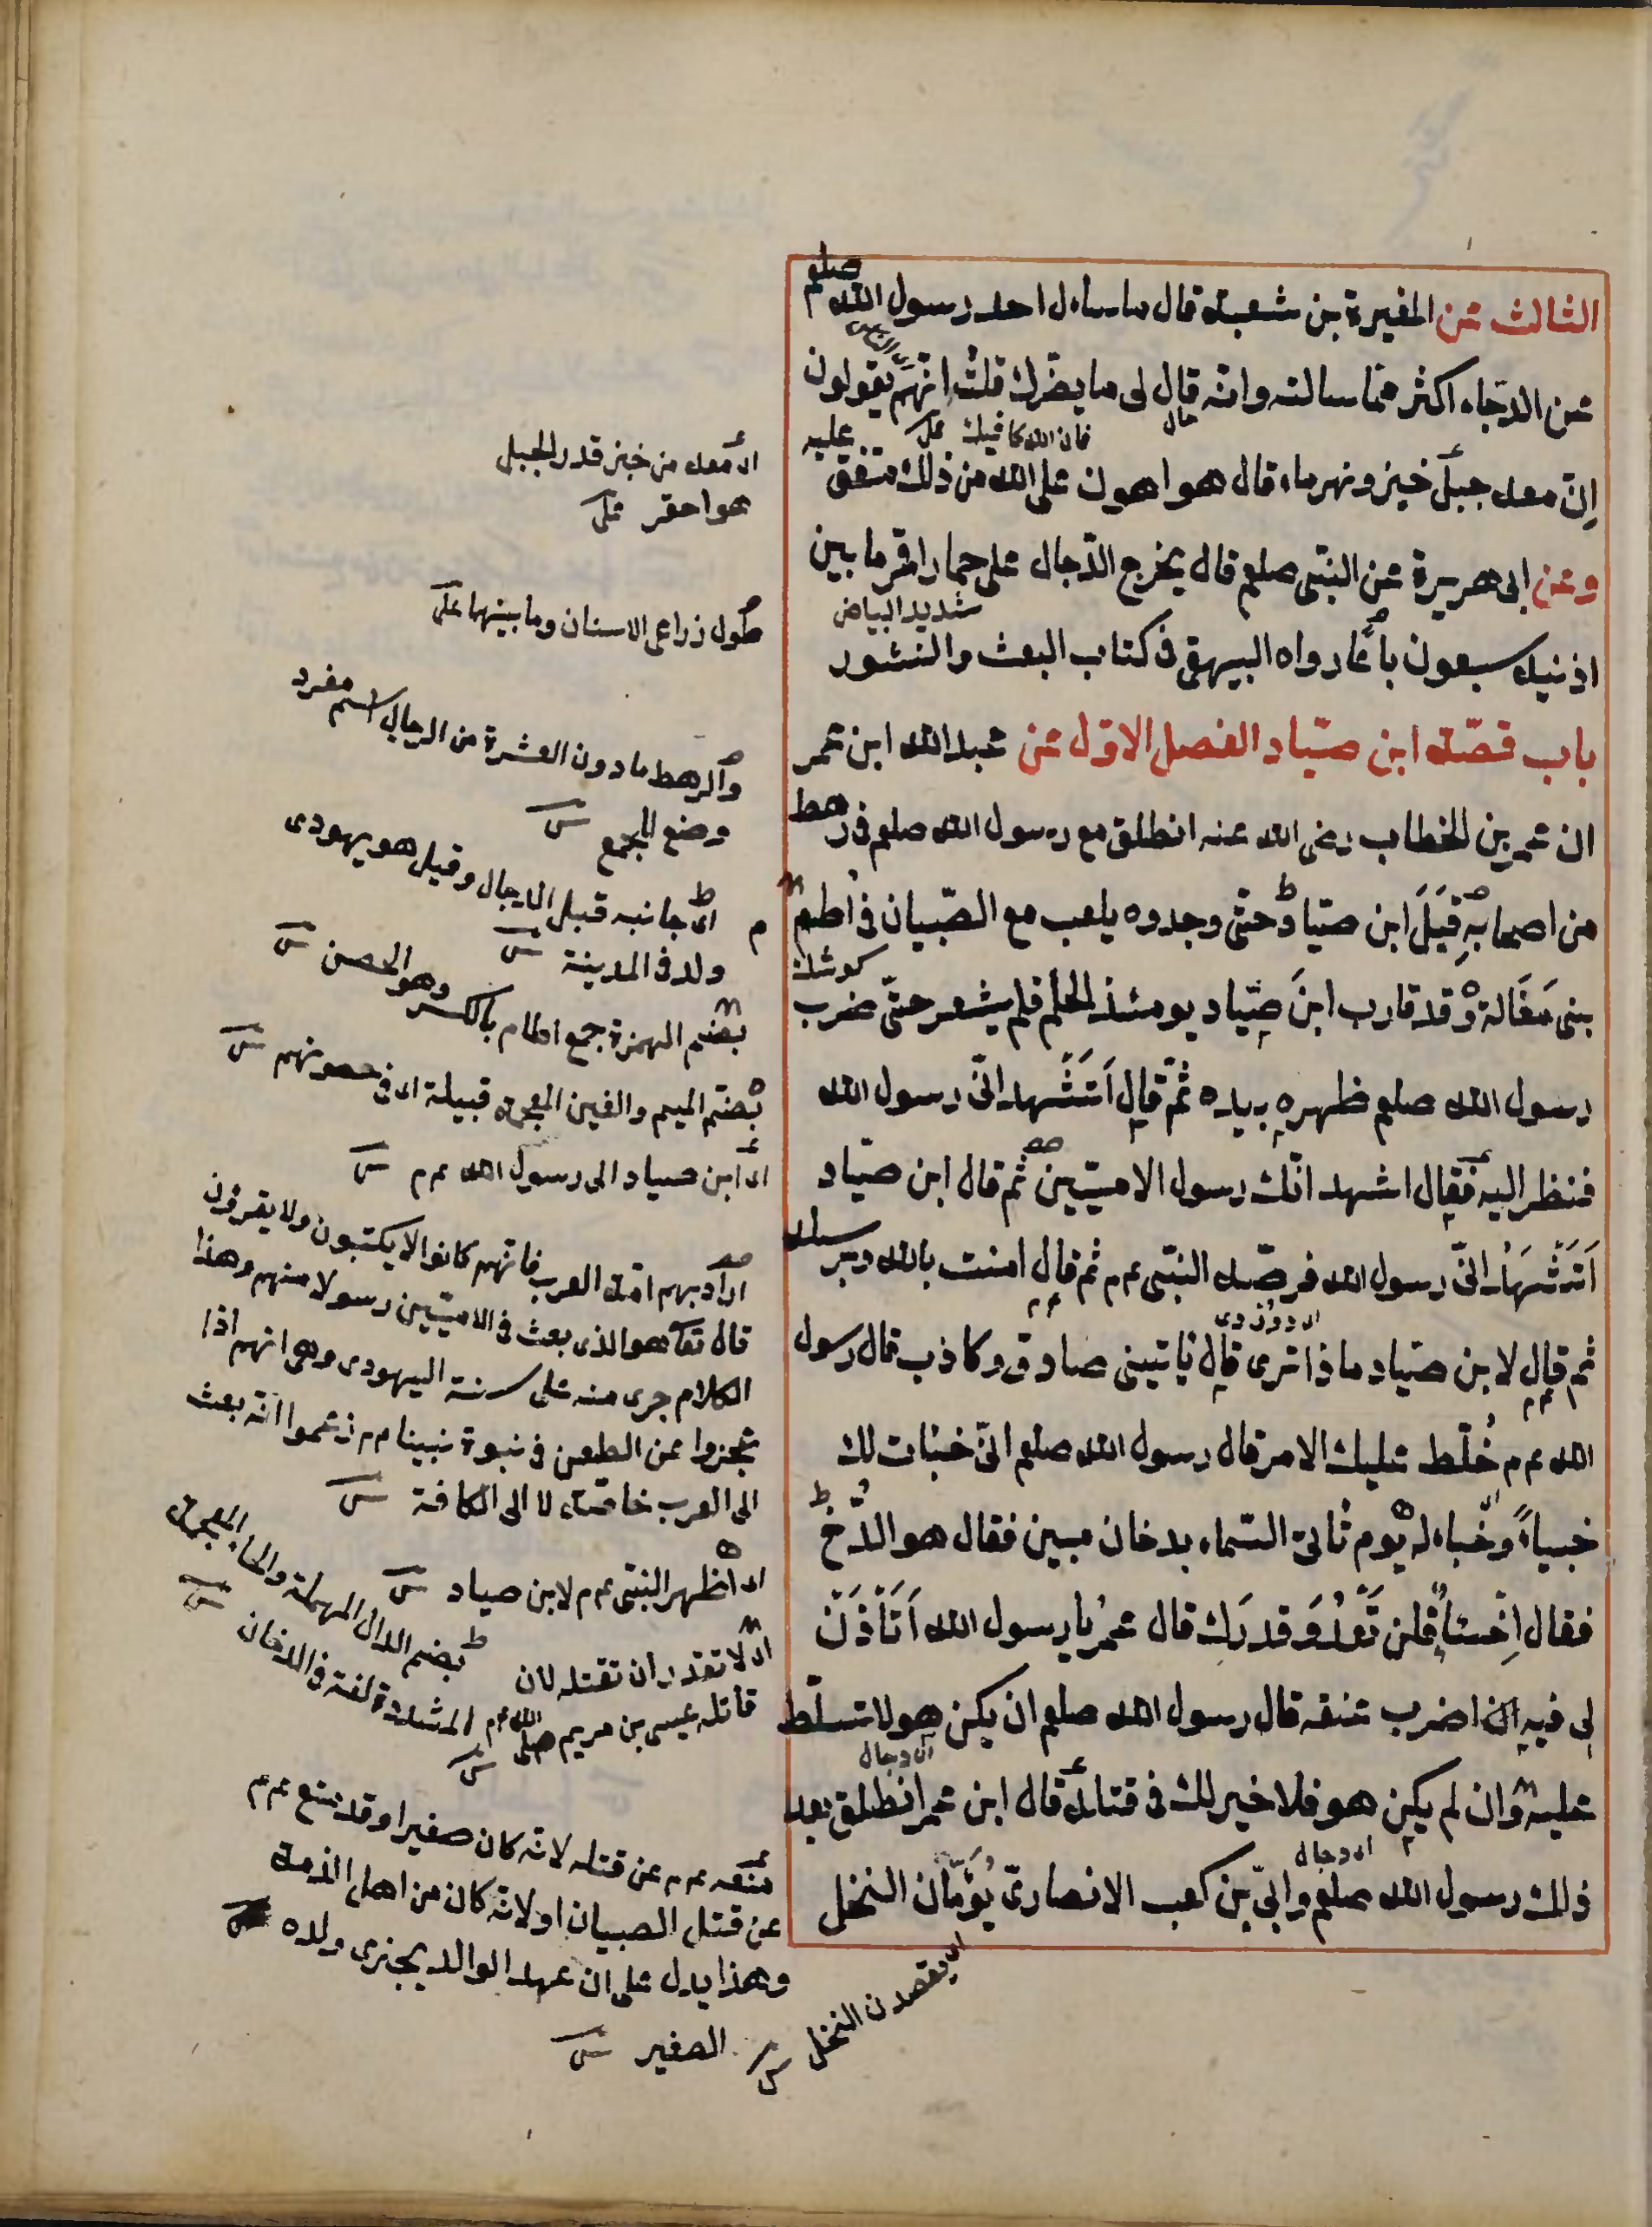 الثالث عن المغيرة بن شعبة قال ما سأل احد رسول الله صلعم
عن الدجال اكثر مما سالته وانه قال لى ما يضرك قلت انهم يقولون
اى الناس
حال
فان الله كافيك على
اِنّ معه جبل خبز ونهر ماء قال هو اهون على الله من ذلك متفق عليه
وعن ابى هريرة عن النبى صلعم قال يخرج الدجال على حمار اقمر ما بين
شديد البياض
اذنيه سبعون باعًا رواه البيهقى فى كتاب البعث والنشور
باب قصّة ابن صيّاد الفصل الاوّل عن عبد الله ابن عمر
ان عمر بن الخطاب رضى الله عنه انطلق مع رسول الله صلعم فى رهط
من اصحابهِ قِبَلَ ابن صيّاد حتّى وجدوه يلعب مع الصّبيان فى اُطم
كوشك
بنى مَغَالة وقد قارب ابنَ صيّاد يومئذ الحلم فلم يشعر حتّى ضرب
رسول الله صلعم ظهره بيده ثمّ قال اَتَشْهد انّى رسول الله
فنظر اليه فقال اشهد انّك رسول الاميّين ثم قال ابن صيّاد
اَتَشْهَدُ انّى رسول الله فرصّه النبّى عم م ثم قال امنت بالله وبرسله
ثم قال لابن صيّاد ماذا ترى قال يأتينى صادق وكاذب قال رسول
الله عم م خُلّط عليك الامر قال رسول الله صلعم انّى خبأت لك
خبياءً وخباء له يوم تأتى السّماء بدخان مبين فقال هو الدُّخ
فقال اِخْسَأْ فلن تَعْدُوَ قدرَك قال عمرُ يا رسول الله اَتَأْذَنُ
لى فيه ان اضرب عنقه قال رسول الله صلعم ان يكن هو لا تسلّط
اى دجال
عليه وان لم يكن هو فلا خير لك فى قتله قال ابن عمر انطلق بعد
اى دجال
ذلك رسول الله صلعم وابىّ بن كعب الانصارىّ يَؤمّان النخل
اى يقصدن النخل ش
اى معه من خبز قدر الجبل
هو احقر على
طول ذراعى الاسنان وما بينهما على
والرهط ما دون العشرة من الرجال اسم مفرد
وضع للجمع ش
اى جانبه قبل الدجال وقيل هو يهودى
ولد فى المدينة ش
بضم الهمزة جمع اطام بالكسر وهو الحصن ش
بضم الميم والغين المعجمة قبيلة اى فى حصونهم ش
اى ابن صياد الى رسول الله عم م ش
اراد بهم امة العرب فانهم كانوا لا يكتبون ولا يقرؤن
قال تعا هو الذى بعث فى الاميّين رسولا منهم وهذا
الكلام جرى منه على سنة اليهودى وهو انهم اذا
عجزوا عن الطعن فى نبوة نبينا عم زعموا انه بعث
الى العرب خاصة لا الى الكافة ش
اى اظهر النبى عم م لابن صياد ش
بضم الدال المهملة والخاء المعجمة
المشددة لغة فى الدخان ش
اى لا تقدر ان تقتله لان
قاتله عيسى بن مريم صلى الله عم ش
منعه عم م عن قتله لانه كان صغيرا وقد منع عم م
عن قتل الصبيان او لانه كان من اهل الذمة
وهذا يدل على ان عهد الوالد يجزى ولده
الصغير ش